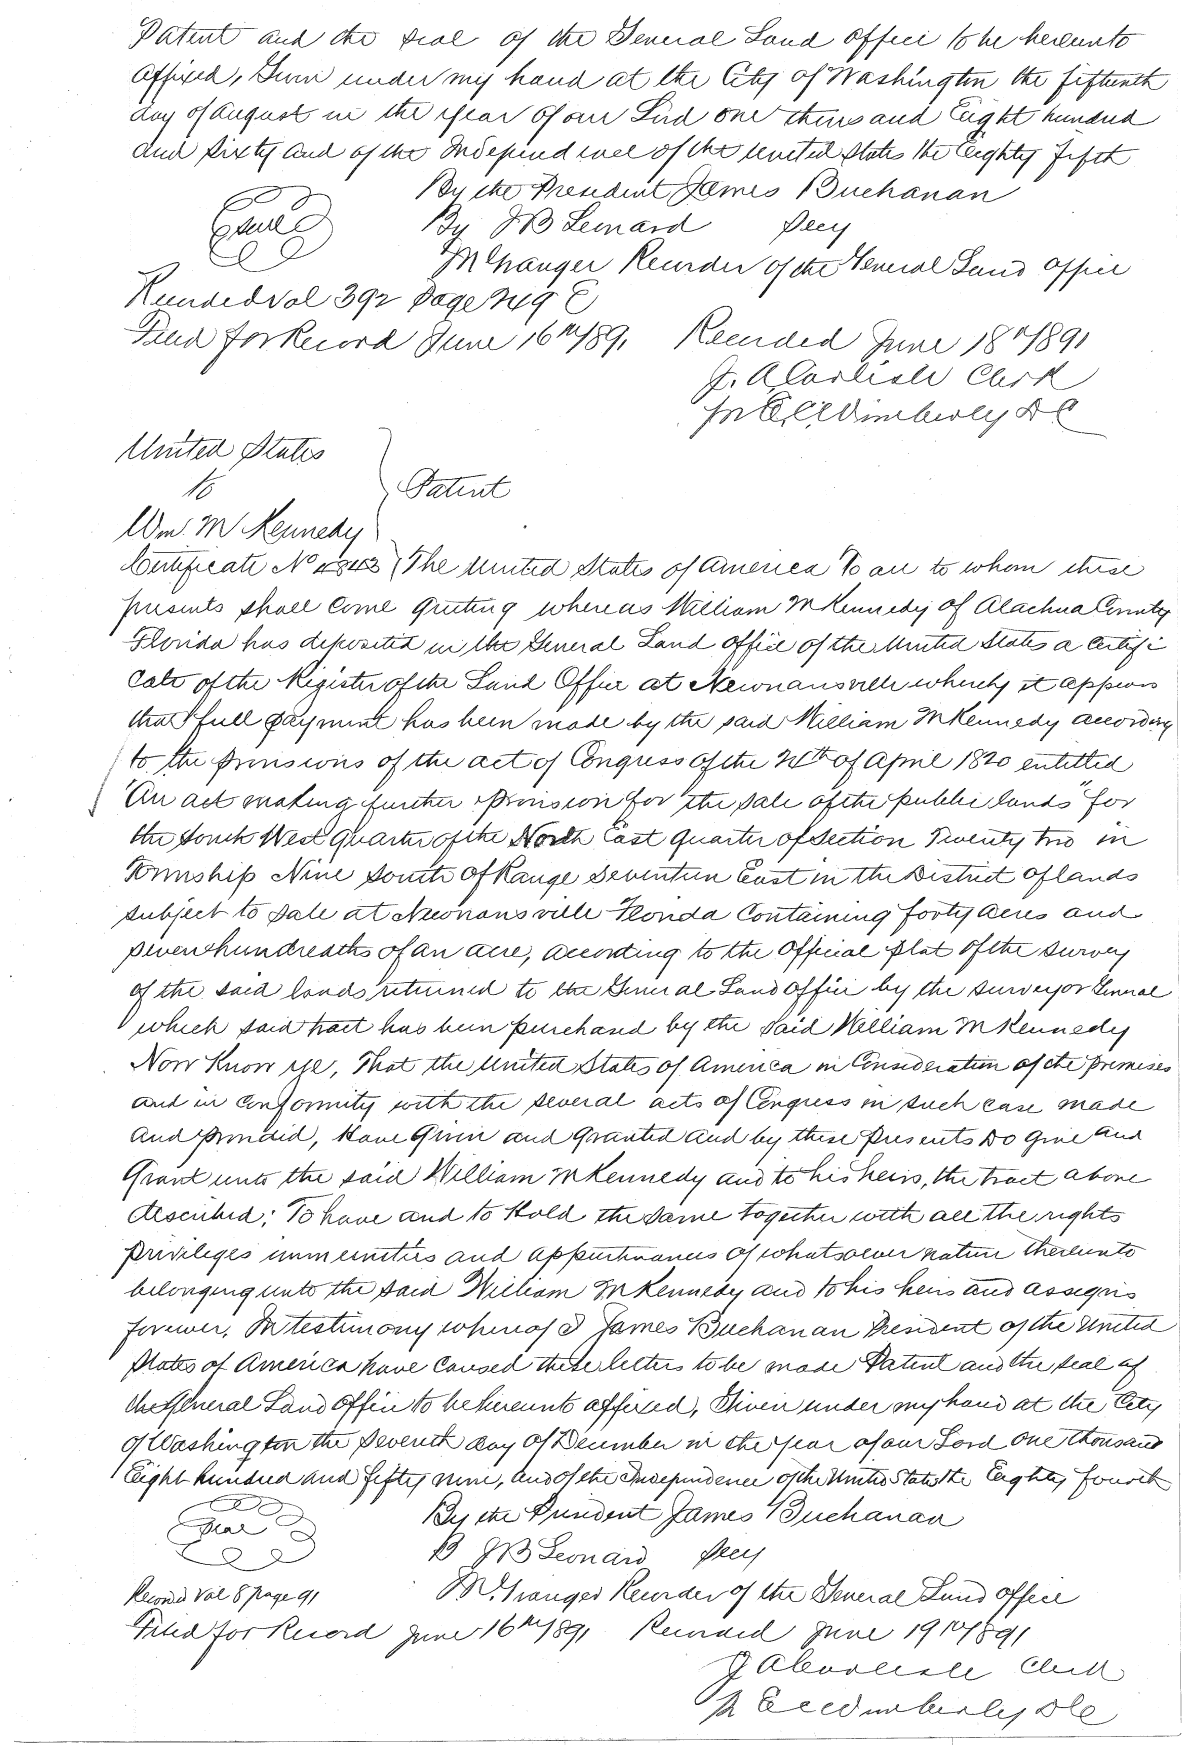 Patent and the seal of the General Land office to be hereunto
affixed, Given under my hand at the City of Washington the fifteenth
day of August in the year of our Lord one thousand Eight hundred
and sixty and of the Independence of the United States the Eighty fifth
By the President James Buchanan
Seal
By J B Leonard Secy
Recorder of the General Land office
Recorded Vol 392 page 249
Filed for Record June 16th/891 Recorded June 18th/891
J. A Carlisle Clerk
Wimberly D C
United States
to
Patent
Wm M Kennedy
Certificate No 4843 The United States of America To all to whom these
presents shall come greeting whereas William M Kennedy of Alachua County
Florida has deposited in the General Land office of the United States a certifi
cate of the Register of the Land Office at Newnansville whereby it appears
that full payment has been made by the said William M Kennedy according
to the provisions of the act of Congress of the 24th of April 1820 entitled
"An act making further provision for the sale of the public lands" for
the South West quarter of the North East quarter of Section Twenty two in
Township Nine South of Range Seventeen East in the District of lands
subject to sale at Newnansville Florida Containing forty acres and
seven hundredths of an acre, according to the official plat of the survey
of the said lands returned to the General Land office by the surveyor General
which said tract has been purchased by the said William M Kennedy
Now Know ye, That the United States of America in Consideration of the premises
and in conformity with the several acts of Congress in such case made
and provided, Have Given and granted and by these presents Do give and
Grant unto the said William M Kennedy and to his heirs, the tract above
described; To have and to Hold the same together with all the rights
privileges immunities and appurtenances of whatsoever nature thereunto
belonging unto the said William M Kennedy and to his heirs and assigns
forever. In testimony whereof I James Buchanan President of the United
States of America have caused these letters to be made Patent and the seal of
the General Land Office to be hereunto affixed, Given under my hand at the City
of Washington the Seventh day of December in the year of our Lord one thousand
Eight hundred and fifty nine, and of the Independence of the United States the Eighty fourth
By the President James Buchanan
Seal
B J B Leonard Secy
Record Vol 8 page 91 Recorder of the General Land office
Filed for Record June 16th/891 Recorded June 19th/891
J A Carlisle Clerk
Wimberly D C